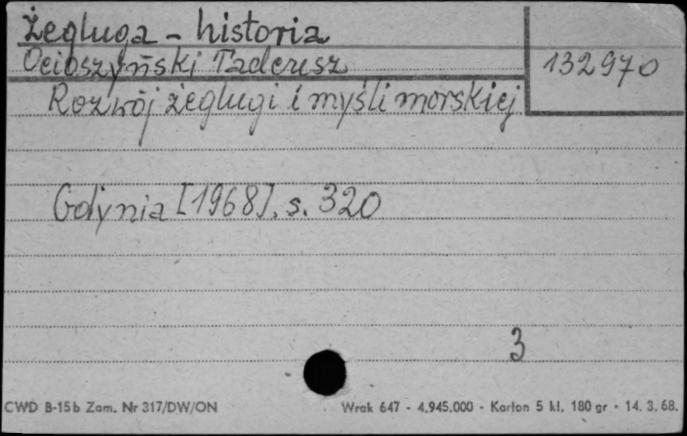 Żegluga - historia
Ocioszyński Tadeusz
132970
Rozwój żeglugi i myśli morskiej
Gdynia [1968], s. 320
3
CWD B-15b Zam. Nr 317/DW/ON
Wrak 647 - 4.945.000 - Karton 5 kl. 180 gr - 14. 3. 68.